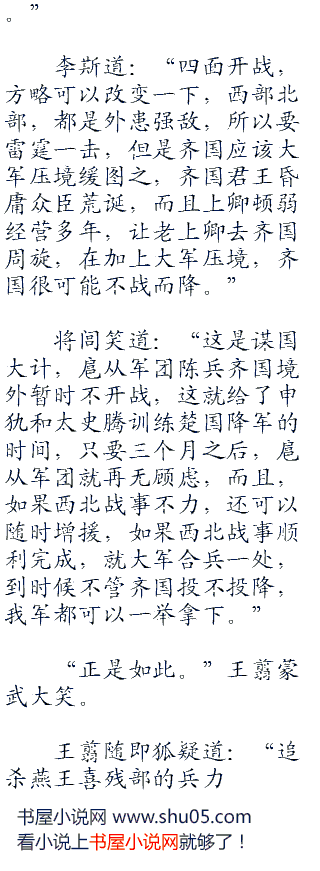 。”
李斯道：“四面开战，
方略可以改变一下，西部北
部，都是外患强敌，所以要
雷霆一击，但是齐国应该大
军压境缓图之，齐国君王昏
庸众臣荒诞，而且上卿顿弱
经营多年，让老上卿去齐国
周旋，在加上大军压境，齐
国很可能不战而降。”
将闾笑道：“这是谋国
大计，扈从军团陈兵齐国境
外暂时不开战，这就给了申
犰和太史腾训练楚国降军的
时间，只要三个月之后，扈
从军团就再无顾虑，而且，
如果西北战事不力，还可以
随时增援，如果西北战事顺
利完成，就大军合兵一处，
到时候不管齐国投不投降，
我军都可以一举拿下。”
“正是如此。”王翦蒙
武大笑。
王翦随即狐疑道：“追
杀燕王喜残部的兵力
书屋小说网 www.shu05.com
看小说上书屋小说网就够了！